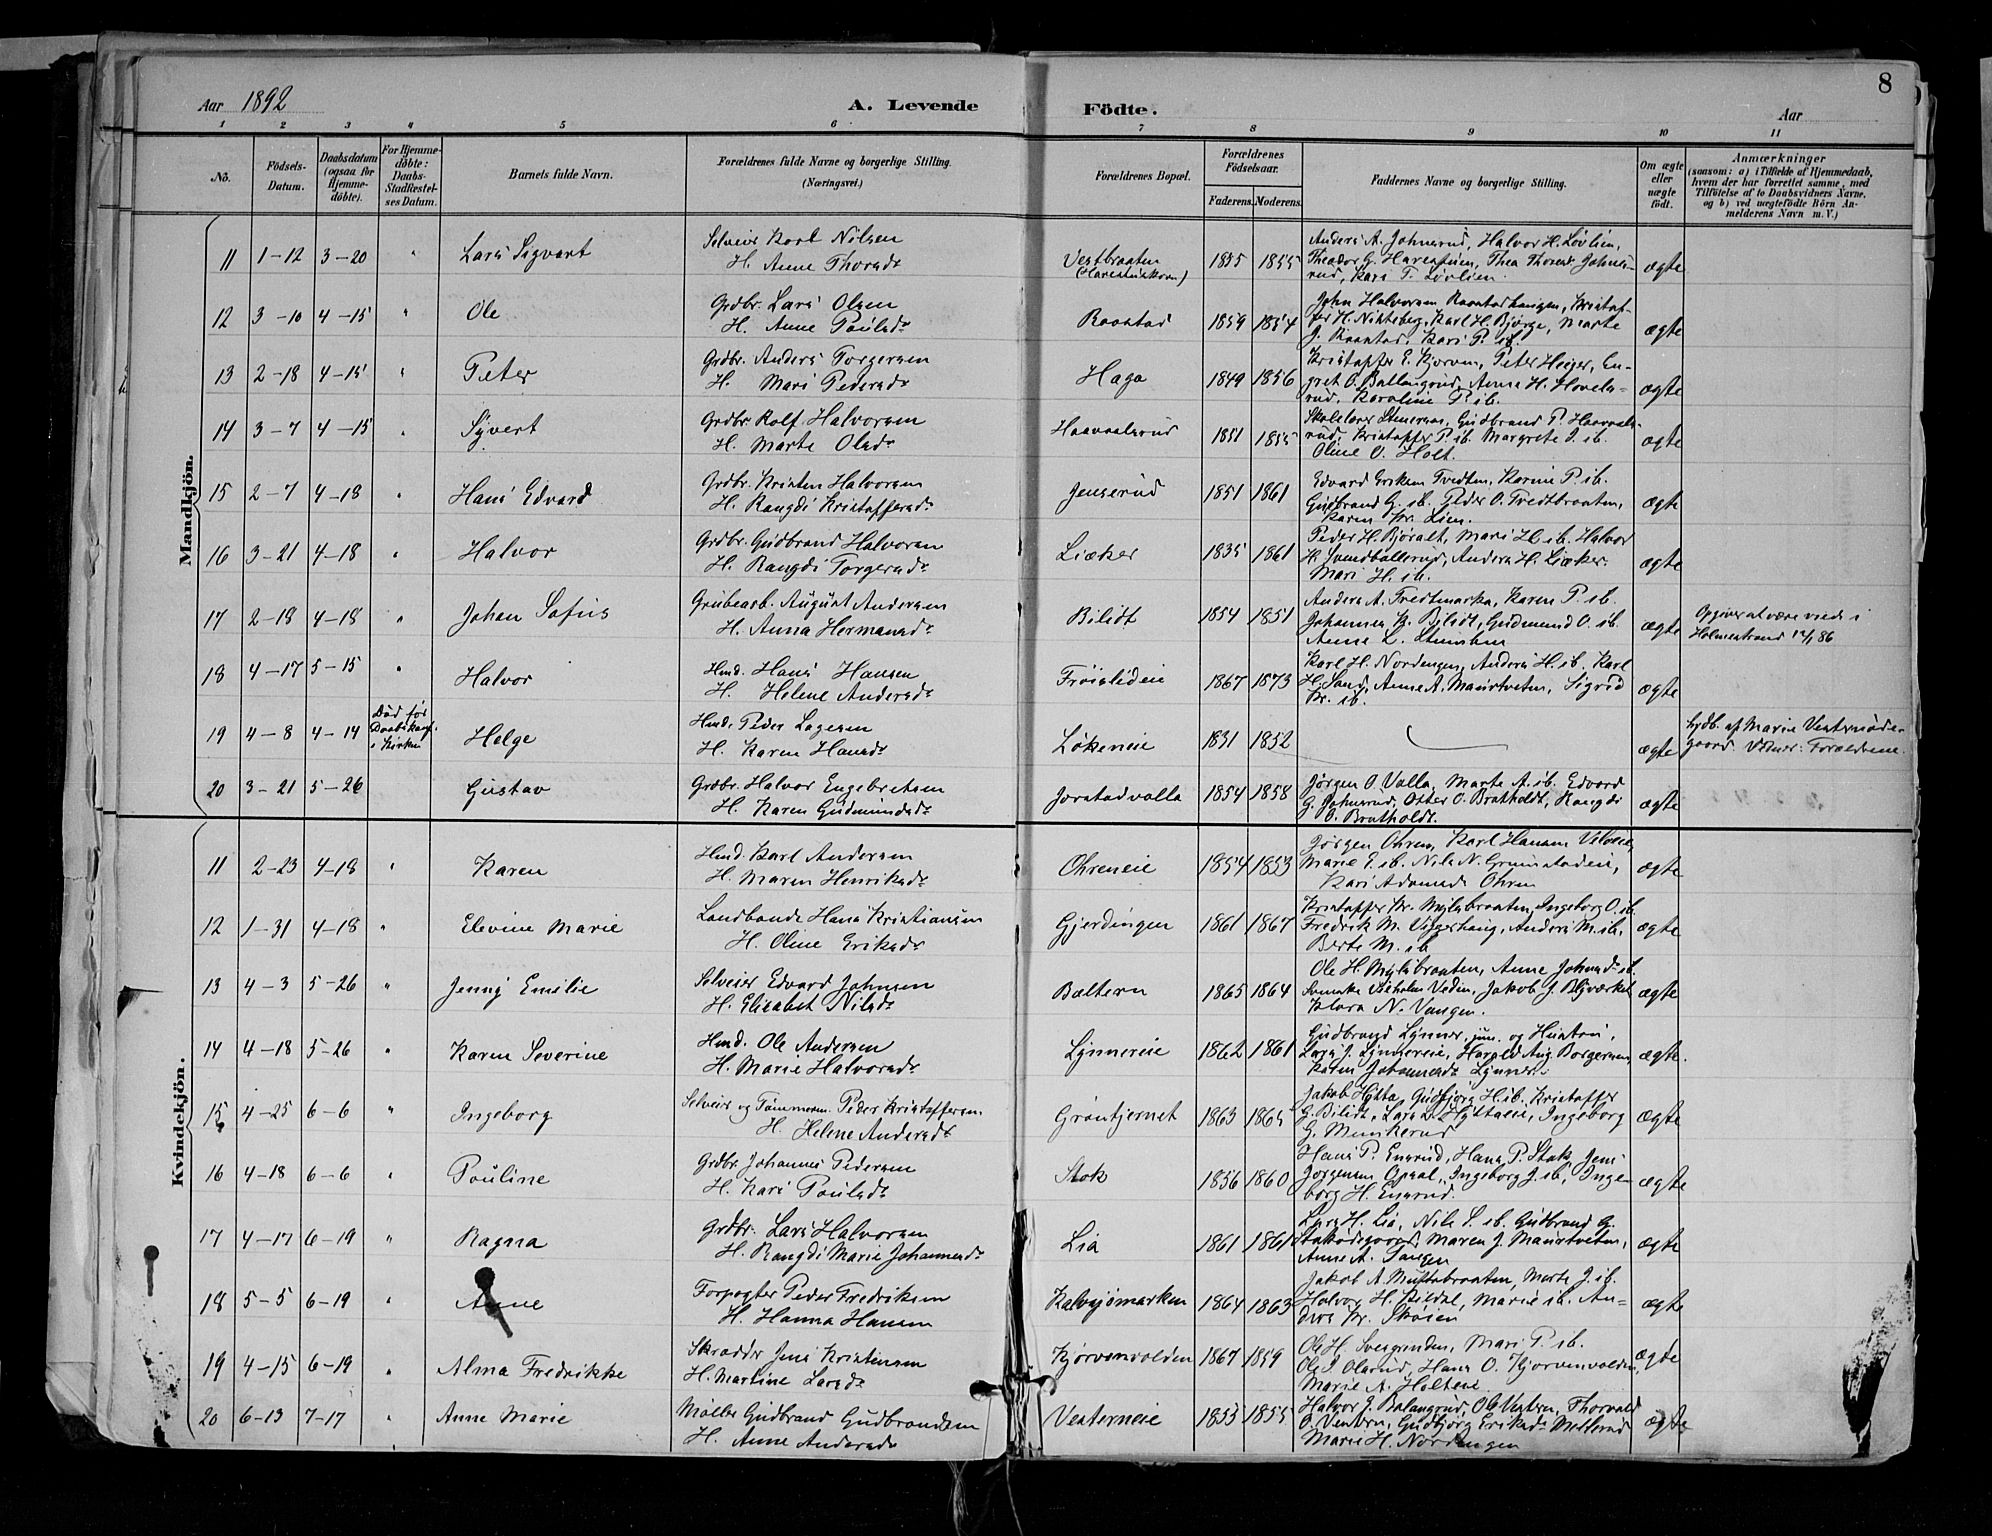 8
Aar 1892 A. Levende Födte. Aar
1 2 3 4 5 6 7 8 9 10 11
No. Födsels-Datum. Daabsdatum (ogsaa for Hjemme-döbte). For Hjemme-döbte: Daabs-Stadfæstel-ses Datum. Barnets fulde Navn. Forældrenes fulde Navne og borgerlige Stilling. (Næringsvei.) Forældrenes Bopæl. Forældrenes Födselsaar. Faderens. Moderens. Faddernes Navne og borgerlige Stilling. Om ægte eller uægte födt. Anmærkninger (saasom: a) i Tilfælde af Hjemmedaab, hvem der har forrettet samme, med Tilföielse af to Daabsvidners Navne, og b) ved uægtefödte Börn An-melderens Navn m. V.)
Mandkjön.
11 1-12 3-20 " Lars Sigvart Selveier Karl Nilsen
H. Anne Thorsdr Vestbraaten 1855 1855 Anders A. Johnsrud, Halvor H. Løvlien, Theodor G. Harestuen, Thea Thorsdr Johnsrud, Kari T. Løvlien. ægte
12 3-10 4-15 " Ole Grdbr. Lars Olsen
H. Anne Paulsdr Raastad 1859 1854 John Halvorsen Raastadhaugen, Kristoffer H. Karl H. Bjørge, Marte J. Raastad, Kari P. ib. ægte
13 2-18 4-15 " Peter Grdbr. Anders Torgersen
H. Mari Pedersdr Haga 1849 1856 Kristoffer E. Kjorven, Peter Heiger, Engret O. Ballangrud, Anne H. Hovelsrud, Karoline P. ib. ægte
14 3-7 4-15 " Syvert Grdbr Rolf Halvorsen
H. Marte Olsdr Haavaalsrud 1851 1855 Skolelærer Stenersen, Gudbrand P. Haavaalsrud, Kristoffer P. ib. Margrete J. ib. Oline O. Holt. ægte
15 2-7 4-18 " Hans Edvard Grdbr. Kristen Halvorsen
H. Rangdi Kristoffersdr Jenserud 1851 1861 Edvard Eriksen Tvedten, Karine P. ib. Gudbrand G. ib. Peder O. Tvedtbraaten, Karen Kr. Lien. ægte
16 3-21 4-18 " Halvor Grdbr. Gudbrand Halvorsen
H. Rangdi Torgersdr Liæker 1835 1861 Peder H. Bjøralt, Mari H. ib. Halvor H. Svendballerud, Anders H. Liæker. Mari H. ib. ægte
17 2-18 4-18 " Johan Sofus Grubearb. August Andersen
H. Anna Hermansdr Bilidt 1854 1851 Anders A. Tvedtmarka, Karen P. ib. Johannes K. Bilidt, Gudmund O. ib. Anne L. ægte Opgiver at være viede i
Holmestrand 86
18 4-17 5-15 " Halvor Hmd. Hans Hansen
H. Helene Andersdr Frøislideie 1867 1873 Karl H. Nordengen, Anders H. ib. Karl H. Sand, Anne A. Maurtveten, Sigrid Kr. ib. ægte
19 4-8 4-14 Død før Daabskunf. i Kirken Helge Hmd. Peder Lagesen
H. Karen Hansdr Løkeneie 1831 1852 ægte hjdb. af Marie
gaard. Vidner: Forældrene.
20 3-21 5-26 Gustav Grdbr. Halvor Engebretsen
H. Karen Gudmundsdr Jorstadvolla 1854 1858 Jørgen O. Volla, Marte A. ib. Edvard G. Johnsrud, Otter O. Bratholdt, Rangdi O. Bratholdt. ægte
Kvindekjön.
11 2-23 4-18 " Karen Hmd. Karl Andersen
H. Maren Henriksdr Ohreneie 1854 1853 Jørgen Ohren, Karl Hansen Marie E. ib. Nils N. Grinistadeie, Kari Ohren ægte
12 1-31 4-18 " Elevine Marie Landhandl. Hans Kristiansen
H. Oline Eriksdr Gjerdingen 1861 1867 Kristoffer Kr. Myllabraaten, Ingeborg O. ib. Fredrik M. Viggerhaug, Anders M. ib. Berte M. ib. ægte
13 4-3 5-26 " Jenny Emilie Selveier Edvard Johnsen
H. Elisabet Nilsdr Baltern 1865 1864 Ole H. Myllabraaten, Anne Johnsdr ib. Svenske Vilhelm Vedin, Jakob J. Blyværket Klara N. Vangen. ægte
14 4-18 5-26 " Karen Severine Hmd. Ole Andersen
H. Marie Halvorsdr Lynnereie 1862 1861 Gudbrand Lynner, jun. og Hustru, Lars J. Lynnereie, Harald Aug. Borgersen, Karen Johannesdr Lynner. ægte.
15 4-25 6-6 " Ingeborg Selveier og Tømmerm. Peder Kristoffersen
H. Helene Andersdr Grøntjernet 1863 1865 Jakob Hytta, Gudbjørg H. ib. Kristoffer G. Bilidt, Lars L. Hyttaeie, Ingeborg G. Munkerud ægte
16 4-18 6-6 " Pouline Grdbr. Johannes Pedersen
H. Kari Poulsdr Stok 1856 1860 Hans P. Engrud, Hans P. Stok, Jens Jørgensen Opaal, Ingeborg J. ib, Ingeborg H. Engrud. ægte
17 4-17 6-19 " Ragna Grdbr. Lars Halvorsen
H. Rangdi Marie Johannesdr Lia 1861 1861 Lars H. Lia, Nils S. ib. Gudbrand G. Stakodegaard, Maren J. Maurtveten, Anne A. Tangen ægte
18 5-5 6-19 " Anne Forpagter Peder Fredriksen
H. Hanna Hansen Kalvsjømarken 1864 1863 Jakob A. Muttabraaten, Marte J. ib. Halvor H. Kildal, Marie ib. Anders Kr. Skøien ægte
19 4-15 6-19 " Alma Fredrikke Skrædder Jens Kristensen
H. Martine Larsdr Kjørvenvolden 1867 1859 Ole H. Svegrinden, Mari P. ib. Ole J. Olsrud, Hans O. Kjorvenvolden, Marie A. Holteie ægte
20 6-13 7-17 " Anne Marie Møller Gudbrand Gudbrandsen
H. Anne Andersdr Vesterneie 1853 1855 Halvor J. Balangrud, Ole Vestern, Thorvald O. Vestern, Gudbjørg Eriksdr Mellerud Marie H. Nordengen ægte